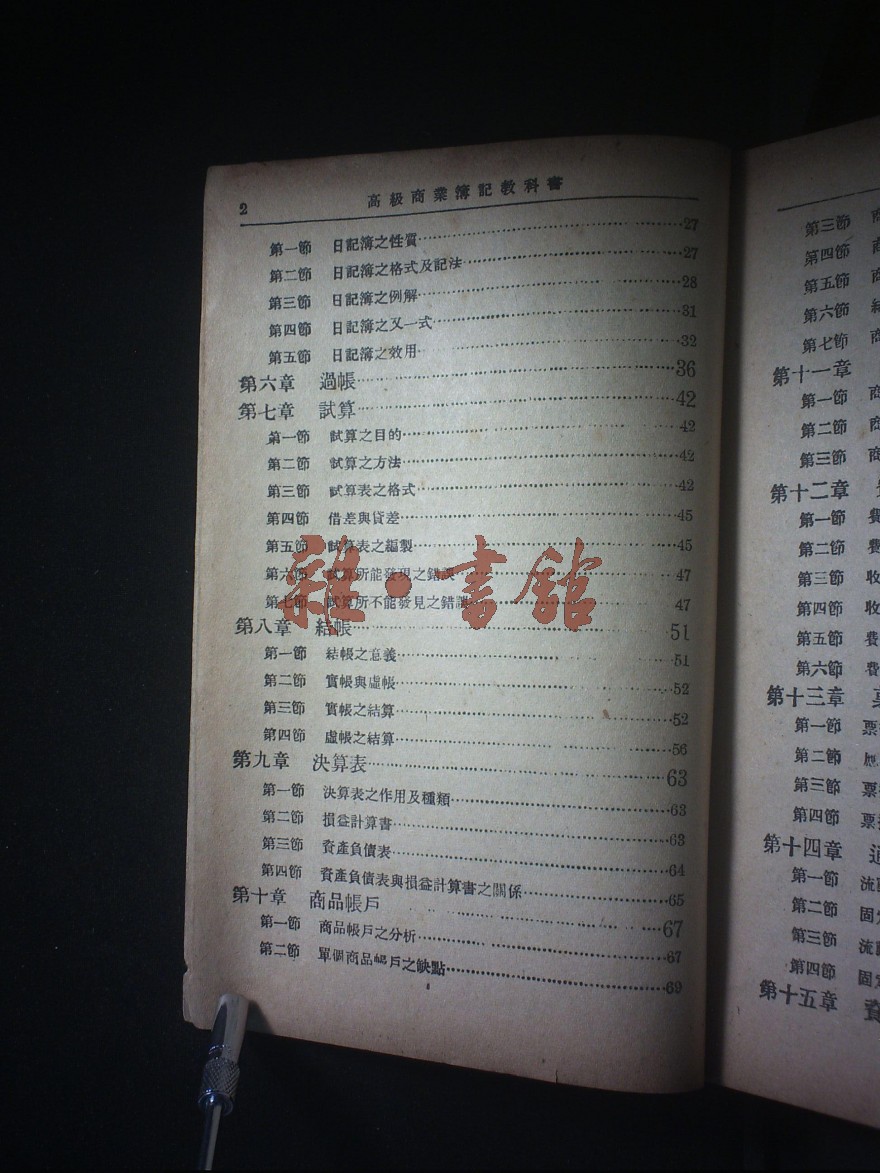 2 高級商業簿記教科書
第一節 日記簿之性質 27
第二節 日記簿之格式及記法 27
第三節 日記簿之例解 28
第四節 日記簿之又一式 31
第五節 日記簿之效用 32
第六章 過帳 36
第七章 試算 42
第一節 試算之目的 42
第二節 試算之方法 42
第三節 試算表之格式 42
第四節 借差與貸差 45
第五節 試算表之編製 45
第六節 試算所能發現之錯誤 47
第七節 試算所不能發見之錯誤 47
第八章 結帳 51
第一節 結帳之意義 51
第二節 實帳與虛帳 52
第三節 實帳之結算 52
第四節 虛帳之結算 56
第九章 決算表 63
第一節 決算表之作用及種類 63
第二節 損益計算書 63
第三節 資產負債表 64
第四節 資產負債表與損益計算書之關係 65
第十章 商品帳戶 67
第一節 商品帳戶之分析 67
第二節 單個商品帳戶之缺點 69
雜·書館
第三節 商
第四節 商
第五節 商
第六節
第七節 商
第十一章
第一節 商
第二節 商
第三節 商
第十二章
第一節 費
第二節 費
第三節 收
第四節 收
第五節 費
第六節 費
第十三章
第一節 票
第二節
第三節 票
第四節 票
第十四章
第一節 流
第二節 固
第三節 流
第四節 固
第十五章 資